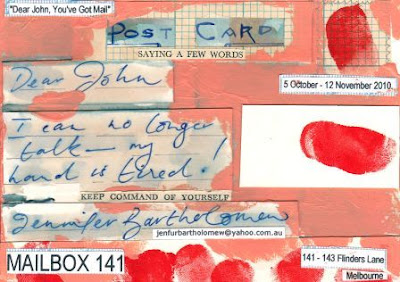 "Dear John, You've Got Mail"
POST CARD
SAYING A FEW WORDS
Dear John
5 October - 12 November 2010
I can no longer
talk — my
hand is tired!
KEEP COMMAND OF YOURSELF
Jennifer Bartholomew
jenfurbartholomew@yahoo.com.au
MAILBOX 141
141 - 143 Flinders Lane
Melbourne